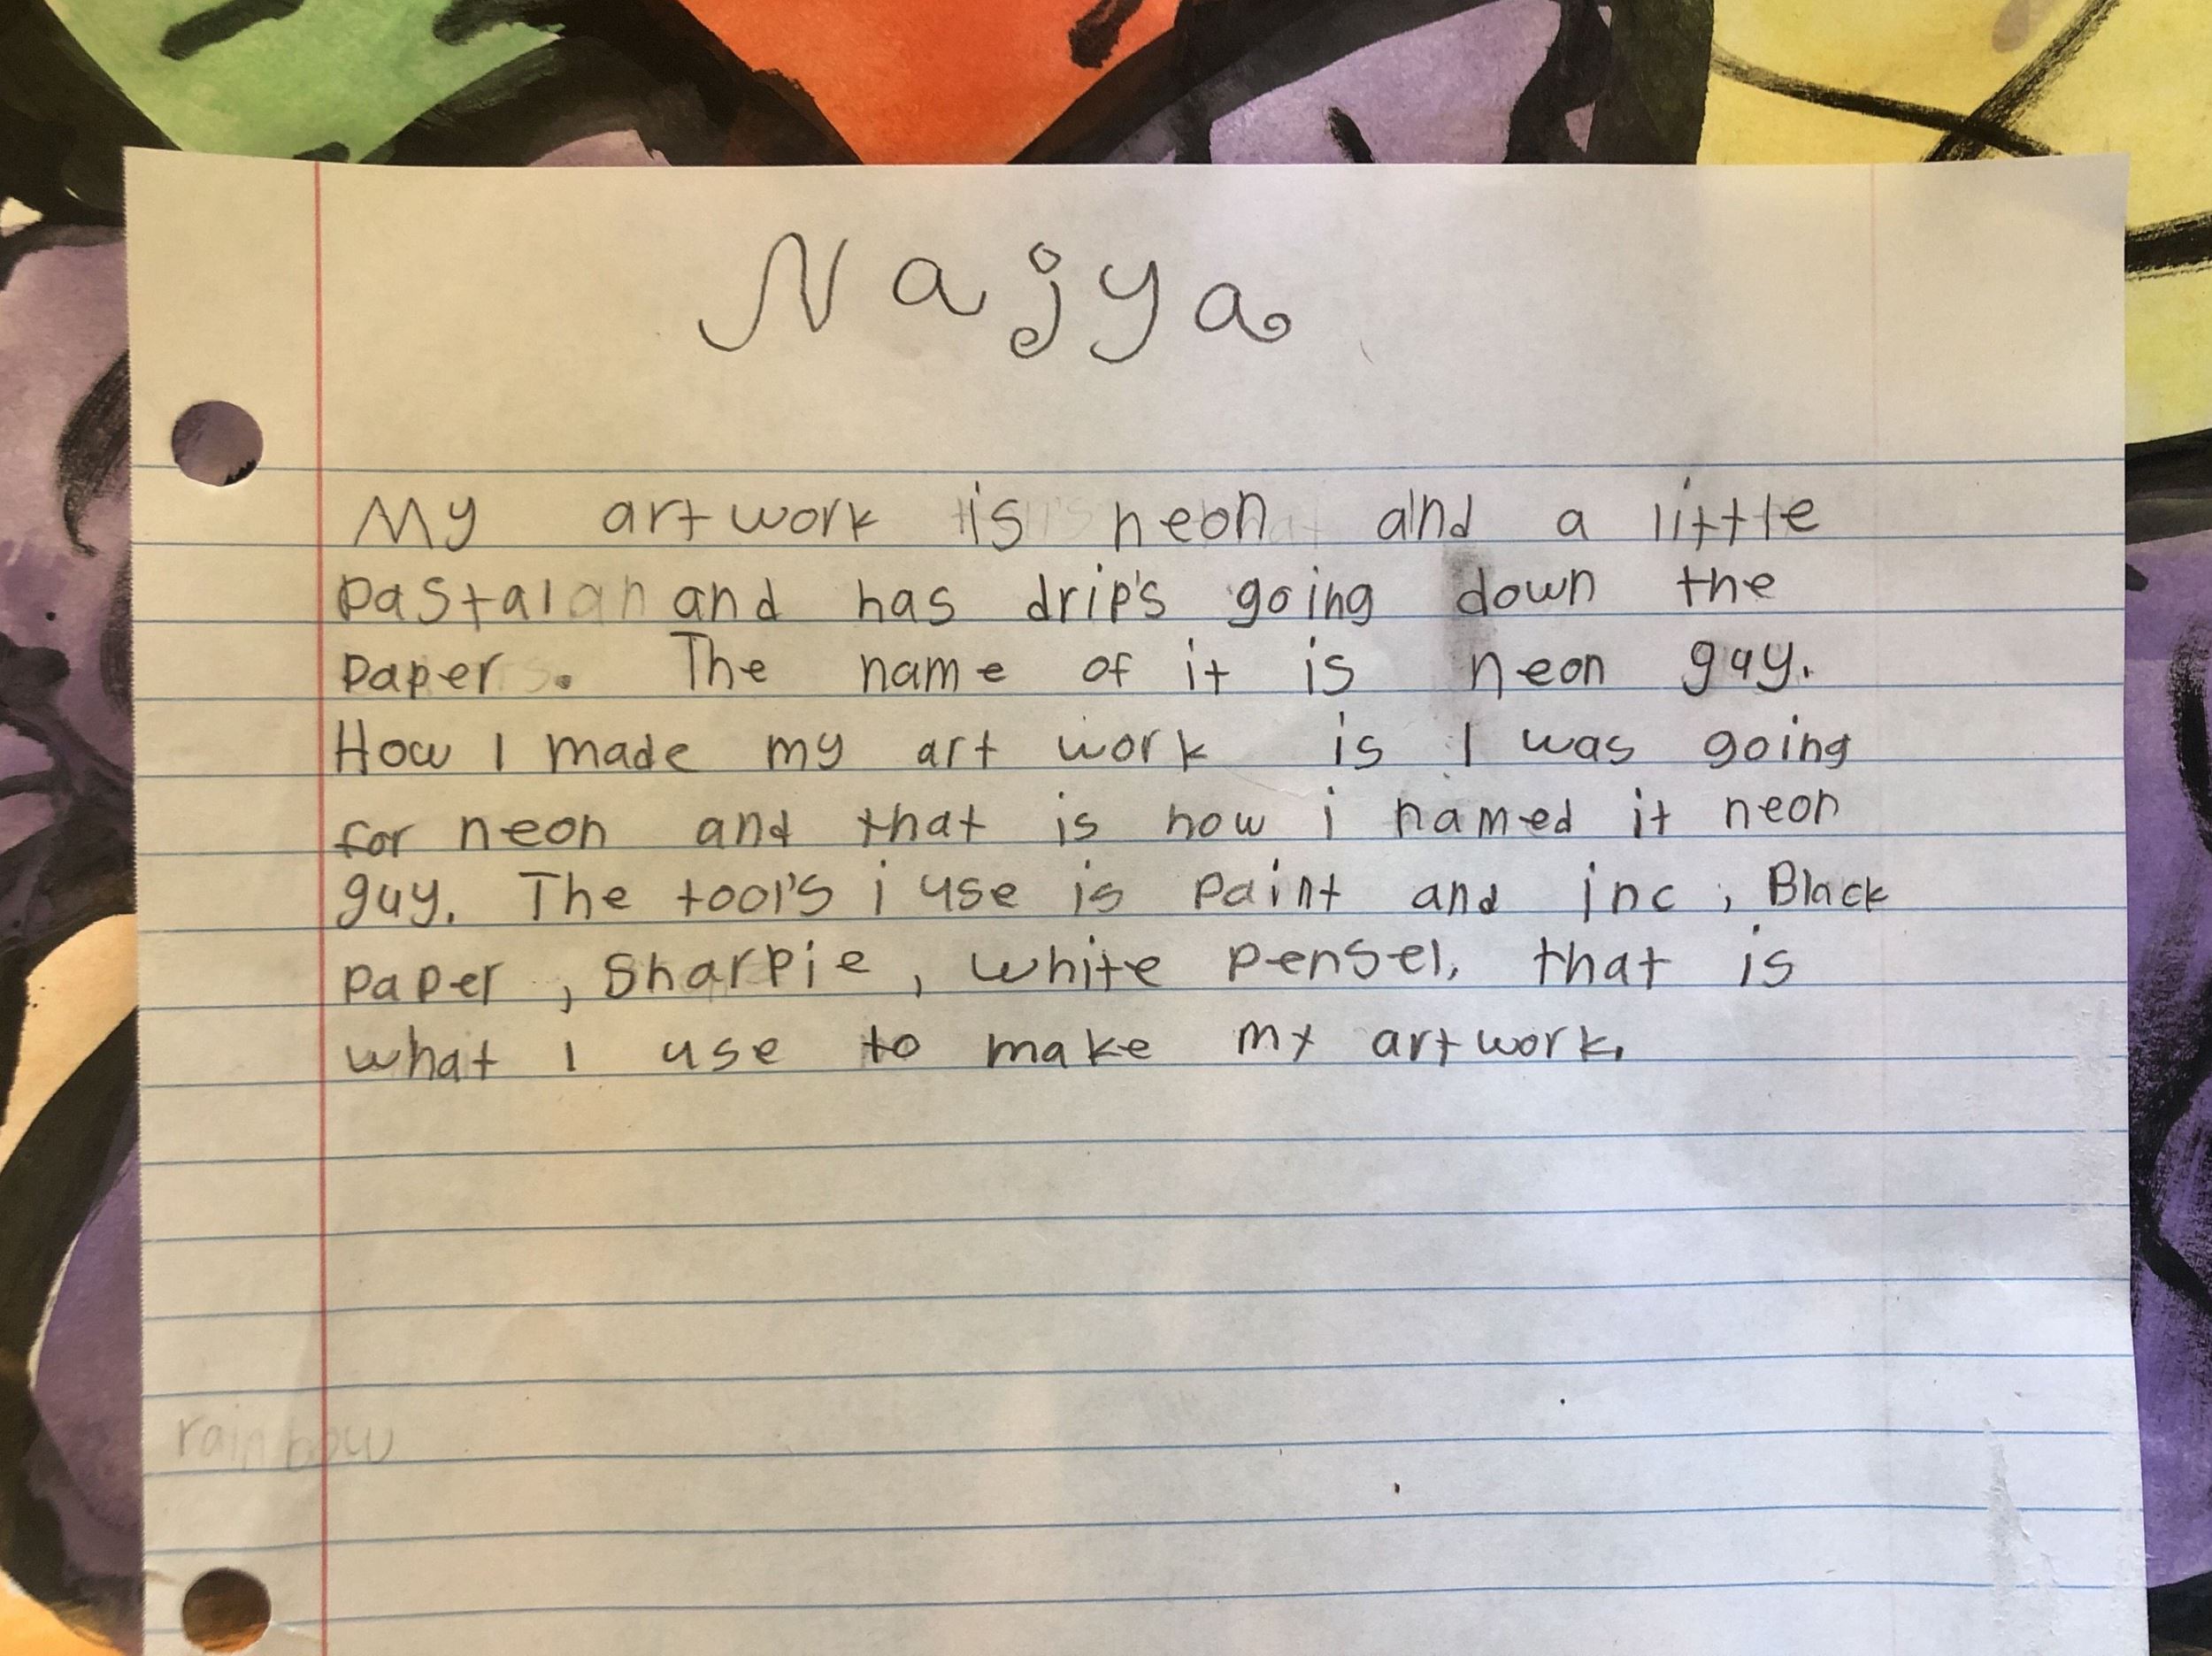 Najya
My artwork is neon and a little
pastal and has drip's going down the
paper. The name of it is neon guy.
How I made my art work is I was going
for neon and that is how i named it neon
guy. The tool's i use is paint and inc, Black
paper, Sharpie, white pensel, that is
what I use to make my artwork.
rainbow